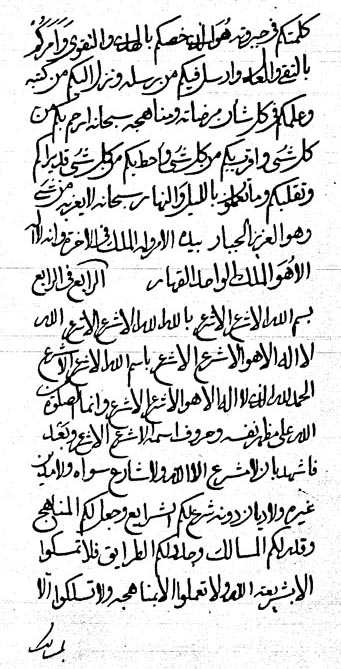 كلمتكم في جبروته هو الذي خصكم بالهدى والتقوى وامركم
بالتقى والعدل وارسل فيكم من رسله ونزل اليكم من كتبه
وعلمكم في كل شأن مرضاته ومناهجه سبحانه ارحم بكم من
كل شئ واقرب بكم من كل شئ واحاط بكم من كل شئ قد يراكم
وتقلبكم وما تعملون بالليل والنهار سبحانه لا يعزب من شئ
وهو العزيز الجبار بيده الامر وله الملك في الاخرة وانه لا اله
الا هو الملك الواحد القهار الرابع في الرابع
بسم الله الاشرع الاشرع بالله الله الاشرع الاشرع الله
لا اله الا هو الاشرع الاشرع باسم الله الاشرع الاشرع
الحمد لله الذي لا اله الا هو الاشرع الاشرع وانما الصلوة من
الله على مظهر نفسه وحروف اسمه الاشرع الاشرع وبعد
فاشهد بان لا مشرع الا الله ولا شارع سواه ولا مدين
غيره ولا ديان دونه شرع لكم الشرايع وجعل لكم المناهج
وقدر لكم المسالك وحدد لكم الطرايق فلا تمسكوا
الا بشريعة الله ولا تعملوا الا بمناهجه ولا تسلكوا الا